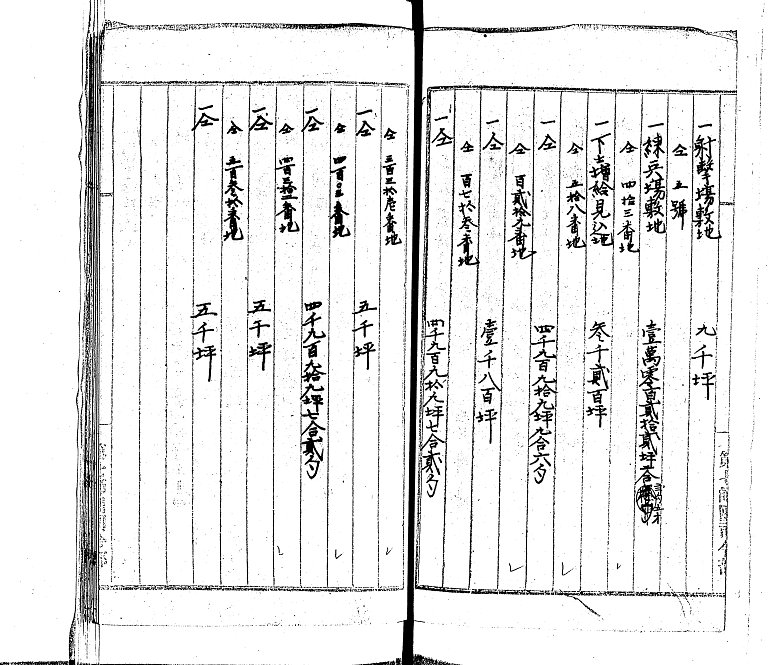 一射撃場敷地 九千坪
仝 五號
一練兵場敷地 壹萬零百貳拾貳坪二合
仝 四拾三番地
一下士増給見込地 参千貳百坪
仝 五拾八番地
一仝 四千九百九拾九坪九合六夕
仝 百貳拾九番地
一仝 壹千八百坪
仝 百七拾参番地
一仝 四千九百九拾九坪七合貳夕
仝 三百三拾壱番地
一仝 五千坪
仝 四百〇三番地
一仝 四千九百九拾九坪七合貳夕
仝 四百三拾二番地
一仝 五千坪
仝 五百参拾番地
一仝 五千坪